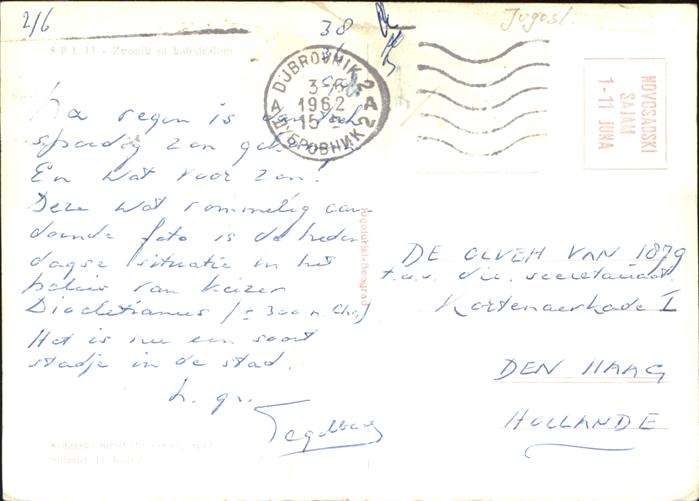 2/6
38
Jugosl.
SPLIT - Zvonik
DUBROVNIK 2
ДУБРОВНИК 2
A A
1962
15
NOVOSADSKI
SAJAM
1-11 JUNA
Na regen is er toch
spoedig zon gekomen
En wat voor zon!
Deze wat rommelig aan-
doende foto is de heden-
daagse situatie in het
paleis van keizer
Diocletianus (± 300 n. Chr.)
Het is nu een soort
stadje in de stad.
h. gr.
Tegelberg
DE OLVEH VAN 1879
t.a.v. dir. secretariaat
Kortenaerkade 1
DEN HAAG
HOLLANDE